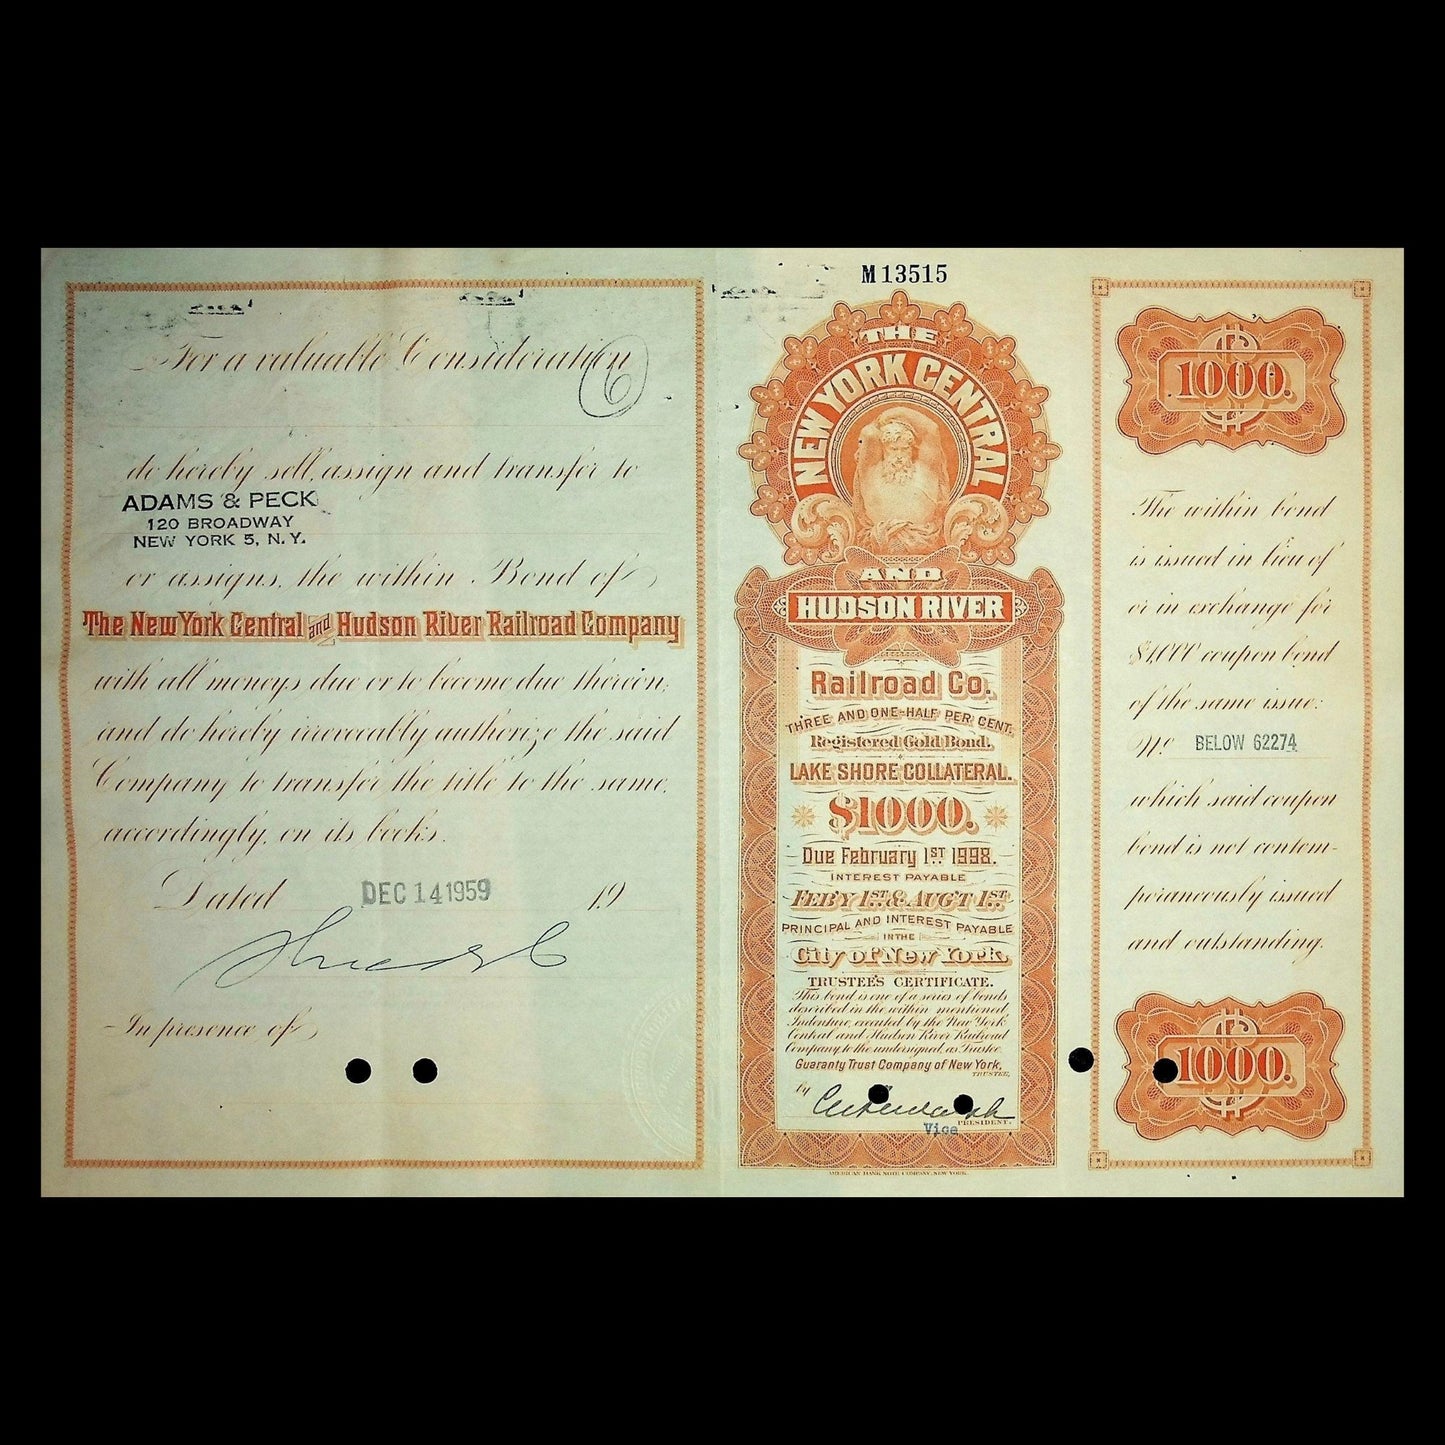 For a valuable Consideration
6
do hereby sell, assign and transfer to
ADAMS & PECK
120 BROADWAY
NEW YORK 5, N. Y.
or assigns, the within Bond of
The New York Central and Hudson River Railroad Company
with all moneys due or to become due thereon;
and do hereby irrevocably authorize the said
Company to transfer the title to the same,
accordingly, on its books.
Dated DEC 14 1959 19
In presence of
M 13515
THE
NEW YORK CENTRAL
AND
HUDSON RIVER
Railroad Co.
THREE AND ONE-HALF PER CENT.
Registered Gold Bond.
LAKE SHORE COLLATERAL.
$1000.
Due February 1ST 1998.
INTEREST PAYABLE
FEB'Y 1ST & AUG'T 1ST
PRINCIPAL AND INTEREST PAYABLE
IN THE
City of New York.
TRUSTEE'S CERTIFICATE.
This bond is one of a series of bonds
described in the within mentioned
Indenture, created by the New York
Central and Hudson River Railroad
Company, to the undersigned, as Trustee.
Guaranty Trust Company of New York,
TRUSTEE,
by
PRESIDENT.
Vice
AMERICAN BANK NOTE COMPANY, NEW YORK.
1000.
The within bond
is issued in lieu of
or in exchange for
$1,000 coupon bond
of the same issue:
No. BELOW 62274
which said coupon
bond is not contem-
poraneously issued
and outstanding.
1000.